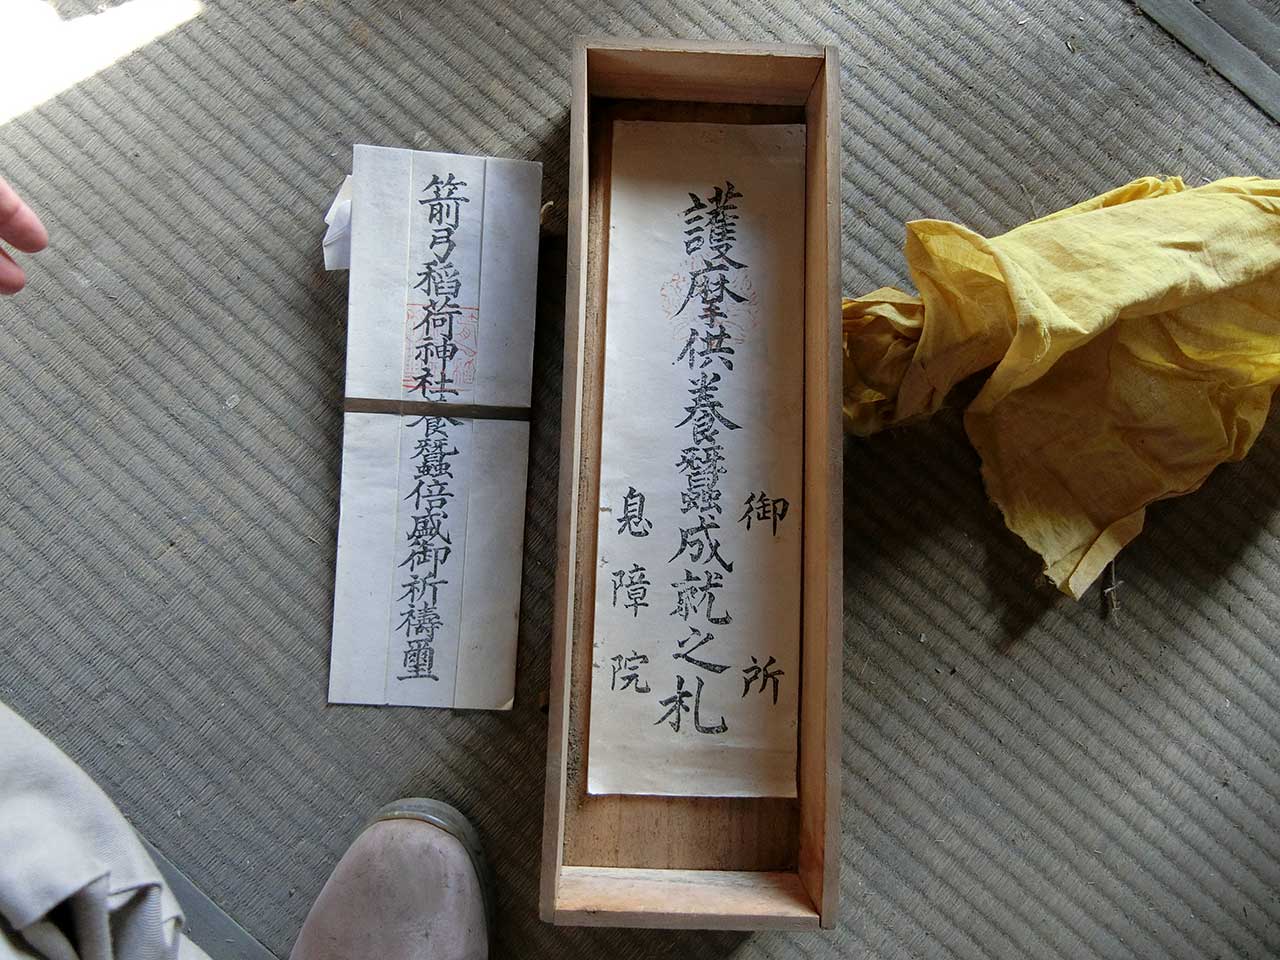 御所
護摩供養蠶成就之札
息障院
箭弓稲荷神社養蠶倍盛御祈禱璽